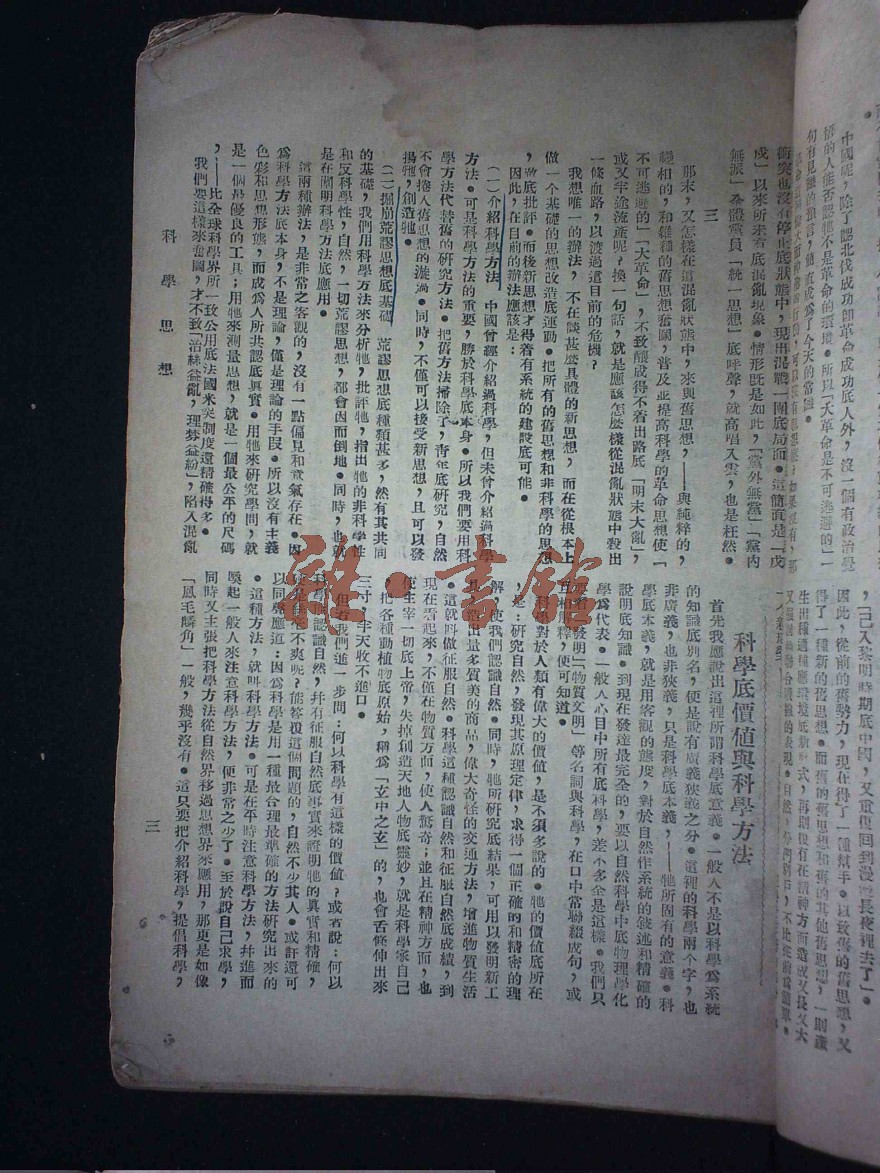 中國呢，除了認北伐成功卽革命成功底人外，沒一個有政治覺
悟的人能否認牠不是革命的環境。所以「大革命是不可逃避的」一
句有見識的預言，簡直成爲了今天的常識。
衝突也沒有停止底狀態中，現出混戰一團底局面。這簡直是「戊
戌」以來所未有底混亂現象。情形旣是如此，「黨外無黨」「黨內
無派」全體黨員「統一思想」底呼聲，就高唱入雲，也是枉然。
三
那末，又怎樣在這混亂狀態中，來與舊思想，——與純粹的，
變相的，和雜種的舊思想奮鬭，普及並提高科學的革命思想使「
不可逃避的」「大革命」，不致釀成得不着出路底「明末大亂」，
或又半途流產呢？換一句話，就是應該怎麼樣從混亂狀態中殺出
一條血路，以渡過這目前的危機？
我想唯一的辦法，不在談甚麼具體的新思想，而在從根本上
做一個基礎的思想改造底運動。把所有的舊思想和非科學的思想
，澈底批評。而後新思想才得着有系統的建設底可能。
因此，在目前的辦法應該是：
（一）介紹科學方法　中國曾經介紹過科學，但未曾介紹過科學
方法。可是科學方法的重要，勝於科學底本身。所以我們要用科
學方法代替舊的研究方法。把舊方法掃除了，靑年底研究，自然
不會捲入舊思想的漩渦。同時，不僅可以接受新思想，且可以發
揚牠，創造牠。
（二）掘崩荒謬思想底基礎　荒謬思想底種類甚多，然有其共同
的基礎，我們用科學方法來分析牠，批評牠，指出牠的非科學性
和反科學性，自然，一切荒謬思想，都會因而倒地。同時，也就
是在闡明科學方法底應用。
這兩種辦法，是非常之客觀的，沒有一點偏見和意氣存在。因
爲科學方法底本身，不是理論，僅是理論的手段。所以沒有主義
色彩和思想形態，而成爲人所共認底眞實。用牠來研究學問，就
是一個最優良的工具；用牠來測量思想，就是一個最公平的尺碼
，——比全球科學界所一致公用底法國米突制度還精確得多。
我們要這樣來奮鬭，才不致「治絲益亂，理棼益紛」，陷入混亂
科學思想
，「已入黎明時期底中國，又重復回到漫漫長夜裡去了」。
因此，從前的舊勢力，現在得了一種幫手。以致舊的舊思想，又
得了一種新的舊思想。而舊的舊思想和舊的其他舊思想，一則產
科學底價値與科學方法
首先我應說出這裡所謂科學底意義。一般人不是以科學爲系統
的知識底別名，便是說有廣義狹義之分。這裡的科學兩個字，也
非廣義，也非狹義，只是科學底本義，——牠所固有的意義。科
學底本義，就是用客觀的態度，對於自然作系統的敍述和精確的
說明底知識。到現在發達最完全的，要以自然科學中底物理學化
學爲代表。一般人心目中所有底科學，差不多全是這樣。我們只
要看「發明」「物質文明」等名詞與科學，在口中常聯綴成句，或
互相解釋，便可知道。
科學對於人類有偉大的價値，是不須多說的。牠的價値底所在
，是：研究自然，發現其原理定律，求得一個正確的和精密的理
解，使我們認識自然。同時，牠所硏究底結果，可用以發明新工
具，造出量多質美的商品，偉大奇怪的交通方法，增進物質生活
。這就叫做征服自然。科學這種認識自然和征服自然底成績，到
現在看起來，不僅在物質方面，使人驚奇；並且在精神方面，也
使主宰一切底上帝，失掉創造天地人物底靈妙，就是科學家自己
，把各種動植物底原始，稱爲「玄中之玄」的，也會舌條伸出來
三寸，半天收不進口。
但若我們進一步問：何以科學有這樣的價値？或者說：何以
科學底認識自然，幷有征服自然底事實來證明牠的眞實和精確，
以同聲應道：因爲科學是用一種最合理最準確的方法研究出來的
。這種方法，就叫科學方法。可是在平時注意科學方法，幷進而
喚起一般人來注意科學方法，便非常之少了。至於說自己求學，
同時又主張把科學方法從自然界移過思想界來應用，那更是如像
「鳳毛麟角」一般，幾乎沒有。這只要把介紹科學，提倡科學，
三
雜·書館